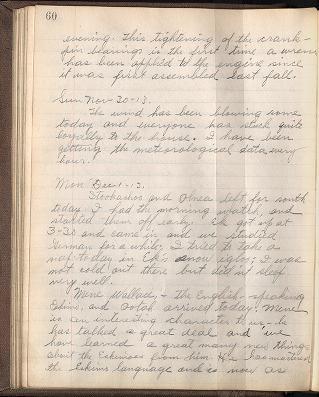 60
evening. This tightening of the crank-
pin bearings is the first time a wrench
has been applied to the engine since
it was first assembled last fall.
Sun Nov-30-13.
The wind has been blowing some
today and everyone has stuck quite
loyally to the house. I have been
getting the meteorological data every
hour.
Mon Dec-1-13.
and left for south
today. I had the morning watch, and
started them off early. Ek got up at
3-30 and came in and we studied
German for a while. I tried to take a
nap today in Ek's snow igloo; I was
not cold out there but did not sleep
very well.
Mene Wallace, - the English-speaking
Eskimo, and arrived today. Mene
is an interesting character to us - he
has talked a great deal and we
have learned a great many new things
about the Eskimos from him. He has mastered
the Eskimo language and is now as